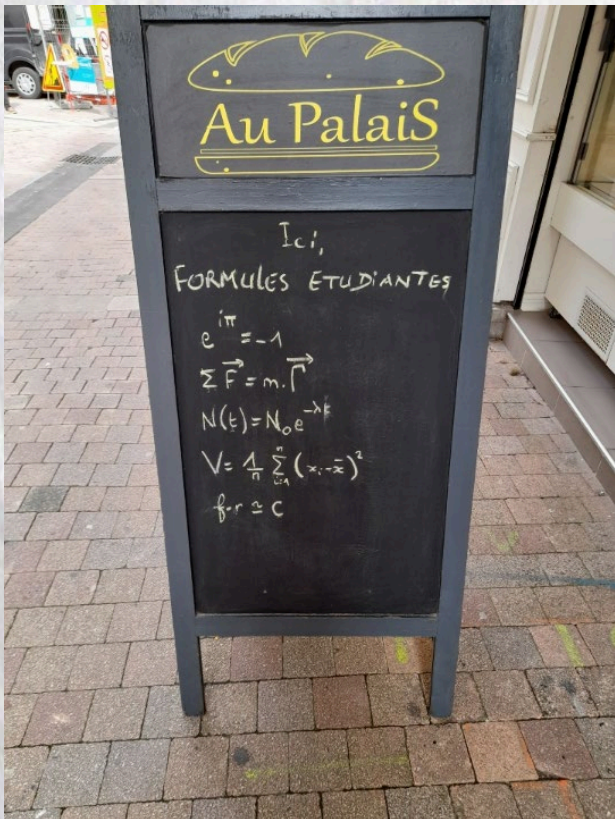 Au PalaiS
Ici,
FORMULES ETUDIANTES
e^{iπ} = -1
Σ F⃗ = m. Γ⃗
N(t) = N₀ e^{-λt}
V = 1/n Σ_{i=1}^{n} (xᵢ - x̄)²
f∘r ≃ C